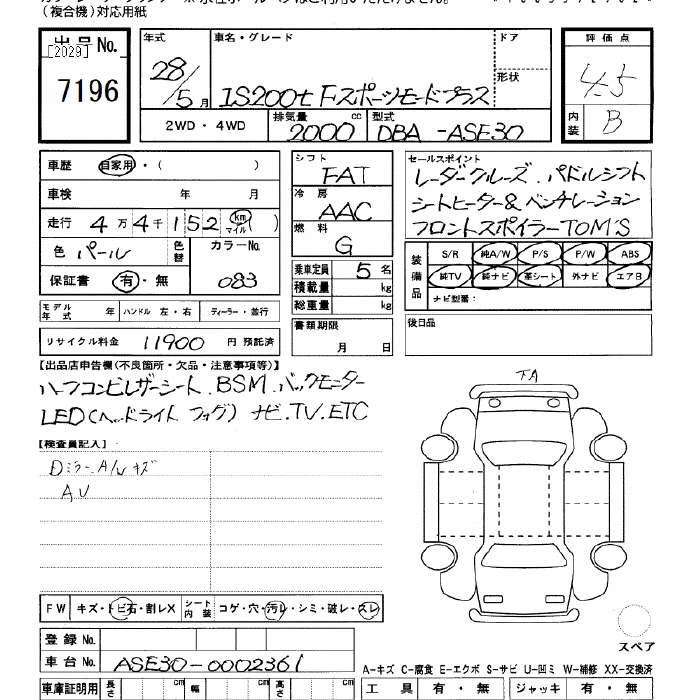 (複合機)対応用紙
出品No.
[2029]
7196
年式
28/5月
車名・グレード
IS200t Fスポーツモードプラス
ドア
形状
評価点
4.5
内装
B
2WD・4WD
排気量
2000
cc
型式
DBA-ASE30
車歴
自家用・( )
車検
年 月
走行
4万4千152 (km マイル)
色
パール
色替
カラーNo.
083
保証書
有・無
モデル年式
年
ハンドル 左・右
ディーラー・並行
リサイクル料金
11900
円 預託済
シフト
FAT
冷房
AAC
燃料
G
乗車定員
5名
積載量
kg
総重量
kg
書類期限
月 日
セールスポイント
レーダークルーズ. パドルシフト
シートヒーター&ベンチレーション
フロントスポイラーTOM'S
装備品
S/R 純A/W P/S P/W ABS
純TV 純ナビ 革シート 外ナビ エアB
ナビ型番:
後日品
【出品店申告欄(不良箇所・欠品・注意事項等)】
ハーフコンビレザーシート. BSM. バックモニター
LED(ヘッドライト フォグ) ナビ.TV.ETC
【検査員記入】
Dミラー. A/W キズ
AU
FA
FW
キズ・トビ石・割レX
シート内装
コゲ・穴・汚レ・シミ・破レ・スレ
登録No.
車台No.
ASE30-0002361
スペア
A-キズ C-腐食 E-エクボ S-サビ U-凹ミ W-補修 XX-交換済
車庫証明用
長さ
cm
幅
cm
高さ
cm
工具
有・無
ジャッキ
有・無